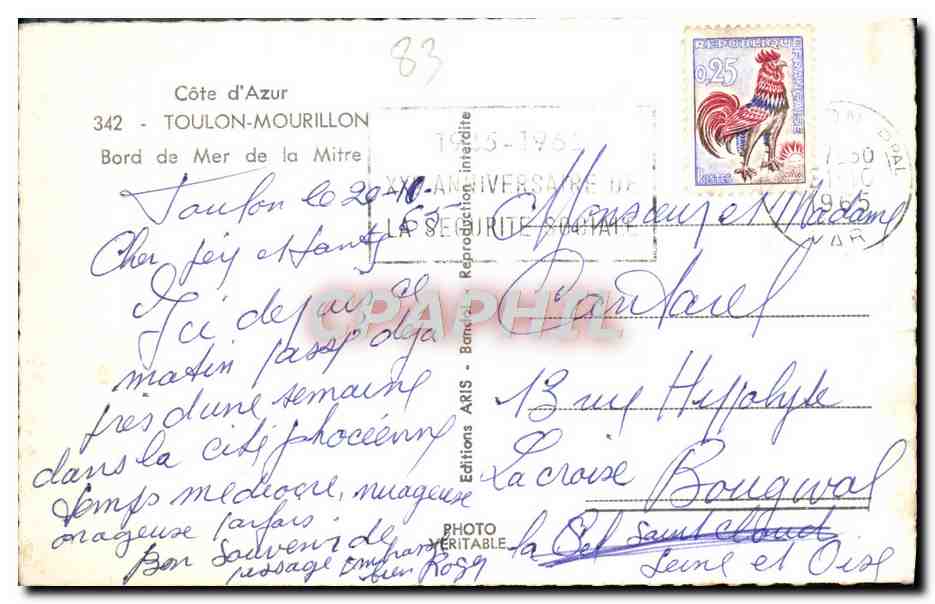 83
Côte d'Azur
342 - TOULON-MOURILLON
Bord de Mer de la Mitre
Toulon le 20-10-65
Cher et
Ici depuis ce
matin passé déjà
près d'une semaine
dans la cité phocéenne
temps médiocre, nuageuse
orageuse parfois.
Bon souvenir de
passage embrasse
bien Roger
Editions ARIS - Bandol - Reproduction interdite
PHOTO
VERITABLE
1945-1965
XXe ANNIVERSAIRE DE
LA SECURITE SOCIALE
REPUBLIQUE FRANÇAISE
0,25
POSTES
1965
VAR
CPAPHIL
Monsieur et Madame
Cantarel
13 rue Hyppolyte
Lacroise Bougival
la Cel Saint Cloud
Seine et Oise